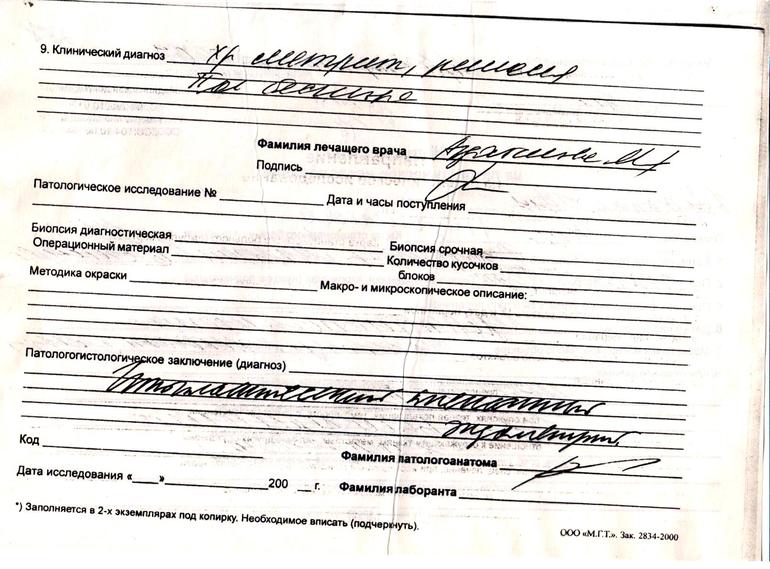 9. Клинический диагноз Хр метрит,
Фамилия лечащего врача
Подпись
Патологическое исследование № Дата и часы поступления
Биопсия диагностическая Биопсия срочная
Операционный материал Количество кусочков
блоков
Методика окраски Макро- и микроскопическое описание:
Патологогистологическое заключение (диагноз)
эндометрия.
Код Фамилия патологоанатома
Дата исследования «____» 200 __ г. Фамилия лаборанта
*) Заполняется в 2-х экземплярах под копирку. Необходимое вписать (подчеркнуть).
ООО «М.Г.Т.». Зак. 2834-2000